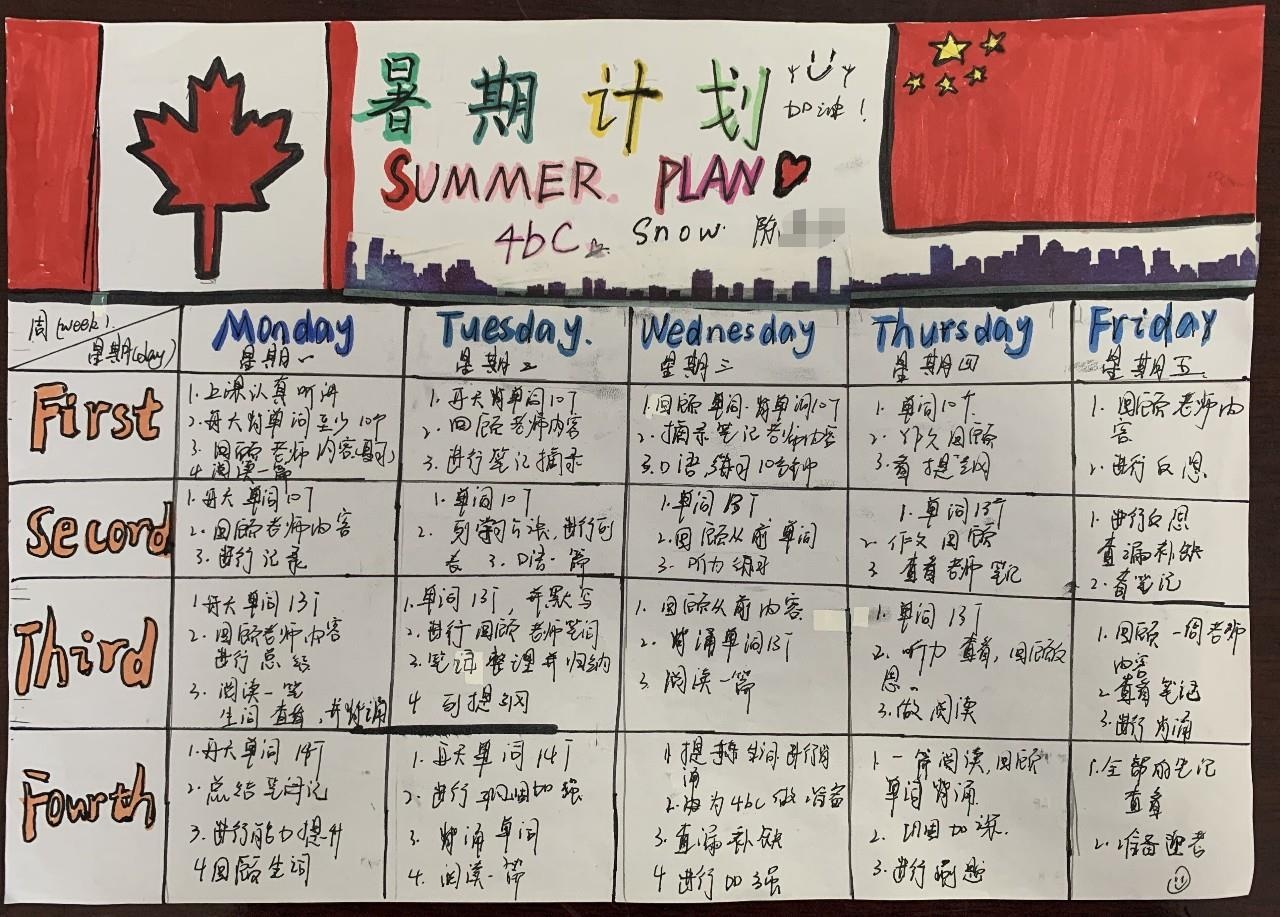 暑期计划
加油!
SUMMER. PLAN
4bC. Snow. 陈
周(week).
星期(day)
Monday
星期一
Tuesday.
星期二
Wednesday
星期三
Thursday
星期四
Friday
星期五.
First
1.上课认真听讲
2.每天背单词至少10个
3.回顾老师内容
4.阅读一篇
1.每天背单词10个
2.回顾老师内容
3.进行笔记摘录
1.回顾单词.背单词10个
2.摘录笔记老师内容
3.口语练习10分钟
1.单词10个.
2.作文回顾
3.看提纲
1.回顾老师内
容
2.进行反思
Second
1.每天单词10个
2.回顾老师内容
3.进行记录
1.单词10个
2.列学习方法,进行列
表 3.口语一篇
1.单词13个
2.回顾从前单词
3.听力练习
1.单词13个
2.作文回顾
3.查看老师笔记
1.进行反思
查漏补缺
2.看笔记
Third
1.每天单词13个
2.回顾老师内容
进行总结
3.阅读一笔
生词查看,并背诵
1.单词13个,并默写
2.进行回顾老师笔记
3.笔记整理并归纳
4.列提纲
1.回顾从前内容.
2.背诵单词13个
3.阅读一篇
1.单词13个
2.听力查看,回顾反
思.
3.做阅读
1.回顾一周老师
内容
2.查看笔记
3.进行背诵
Fourth
1.每天单词14个
2.总结笔记
3.进行能力提升
4.回顾生词
1.每天单词14个
2.进行巩固加强
3.背诵单词
4.阅读一篇
1.提 生词进行背
诵
2.为4bc做准备
3.查漏补缺
4.进行加强
1.一篇阅读,回顾
单词背诵.
2.巩固加深.
3.进行刷题
1.全部的笔记
查看
2.准备迎考